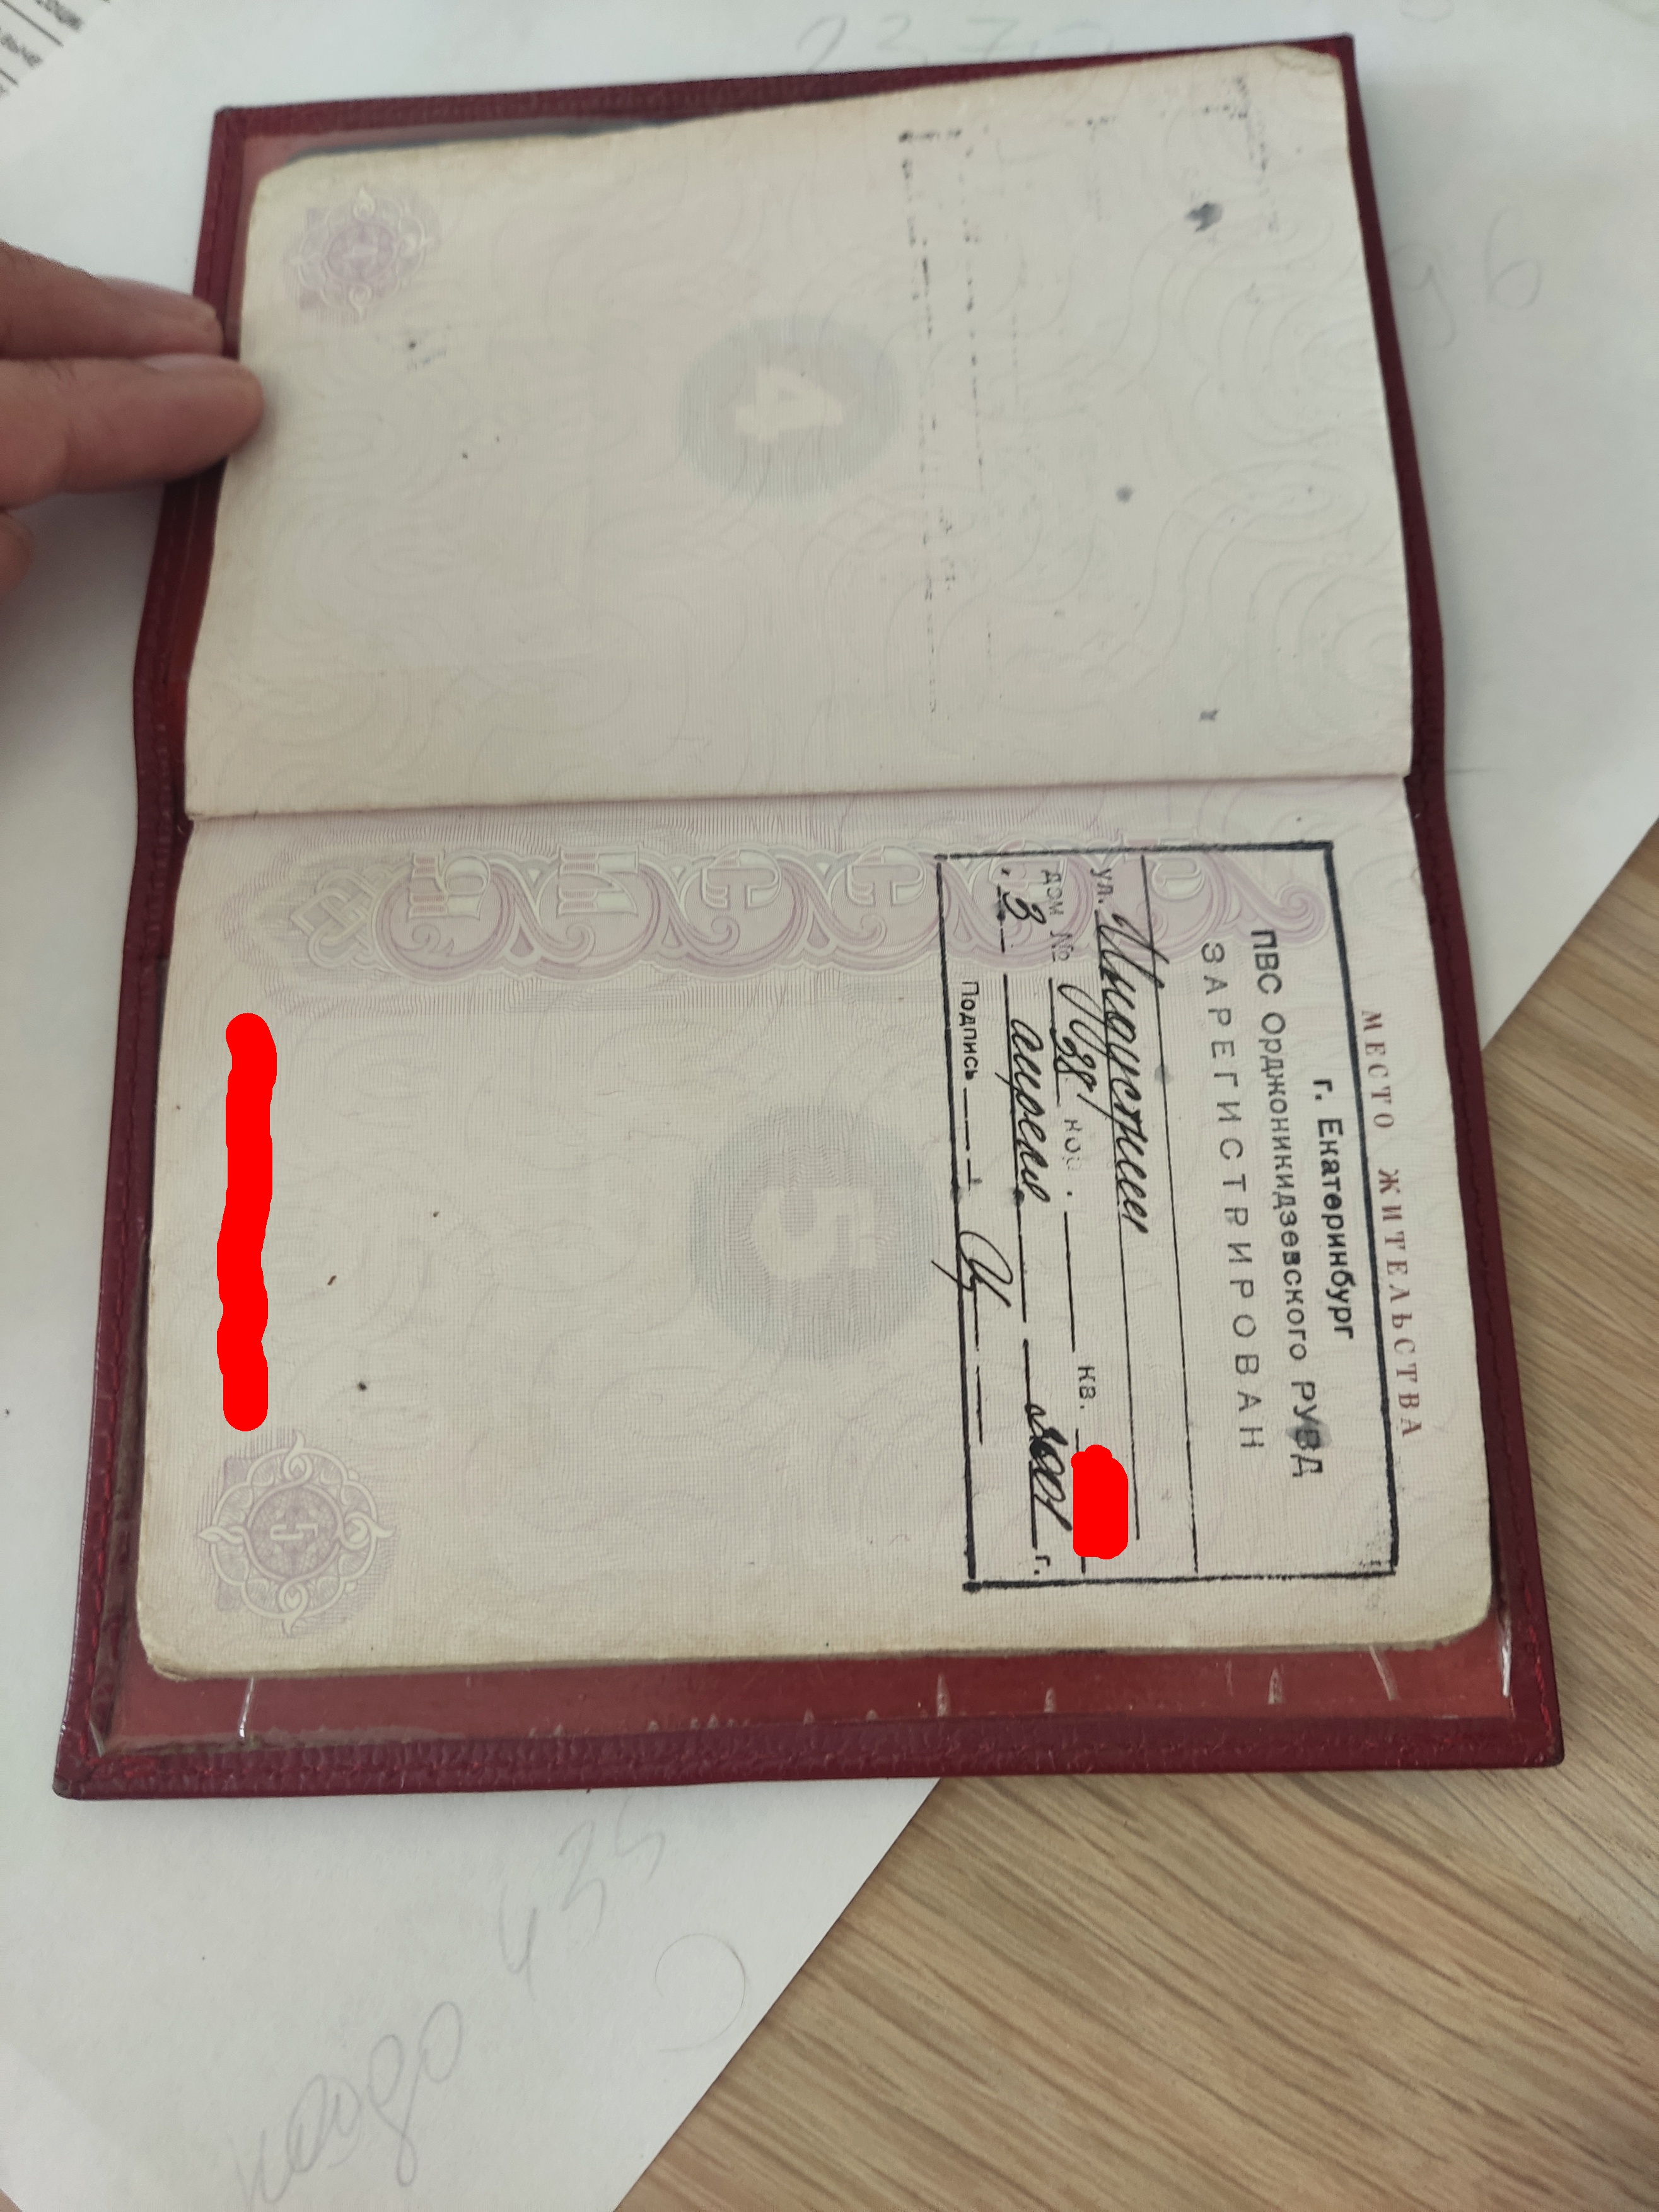 МЕСТО ЖИТЕЛЬСТВА
г. Екатеринбург
ПВС Орджоникидзевского РУВД
ЗАРЕГИСТРИРОВАН
ул. Индустрии
дом № кор. кв.
"3" апреля 2001 г.
Подпись
РОССИЯ
4
5
5